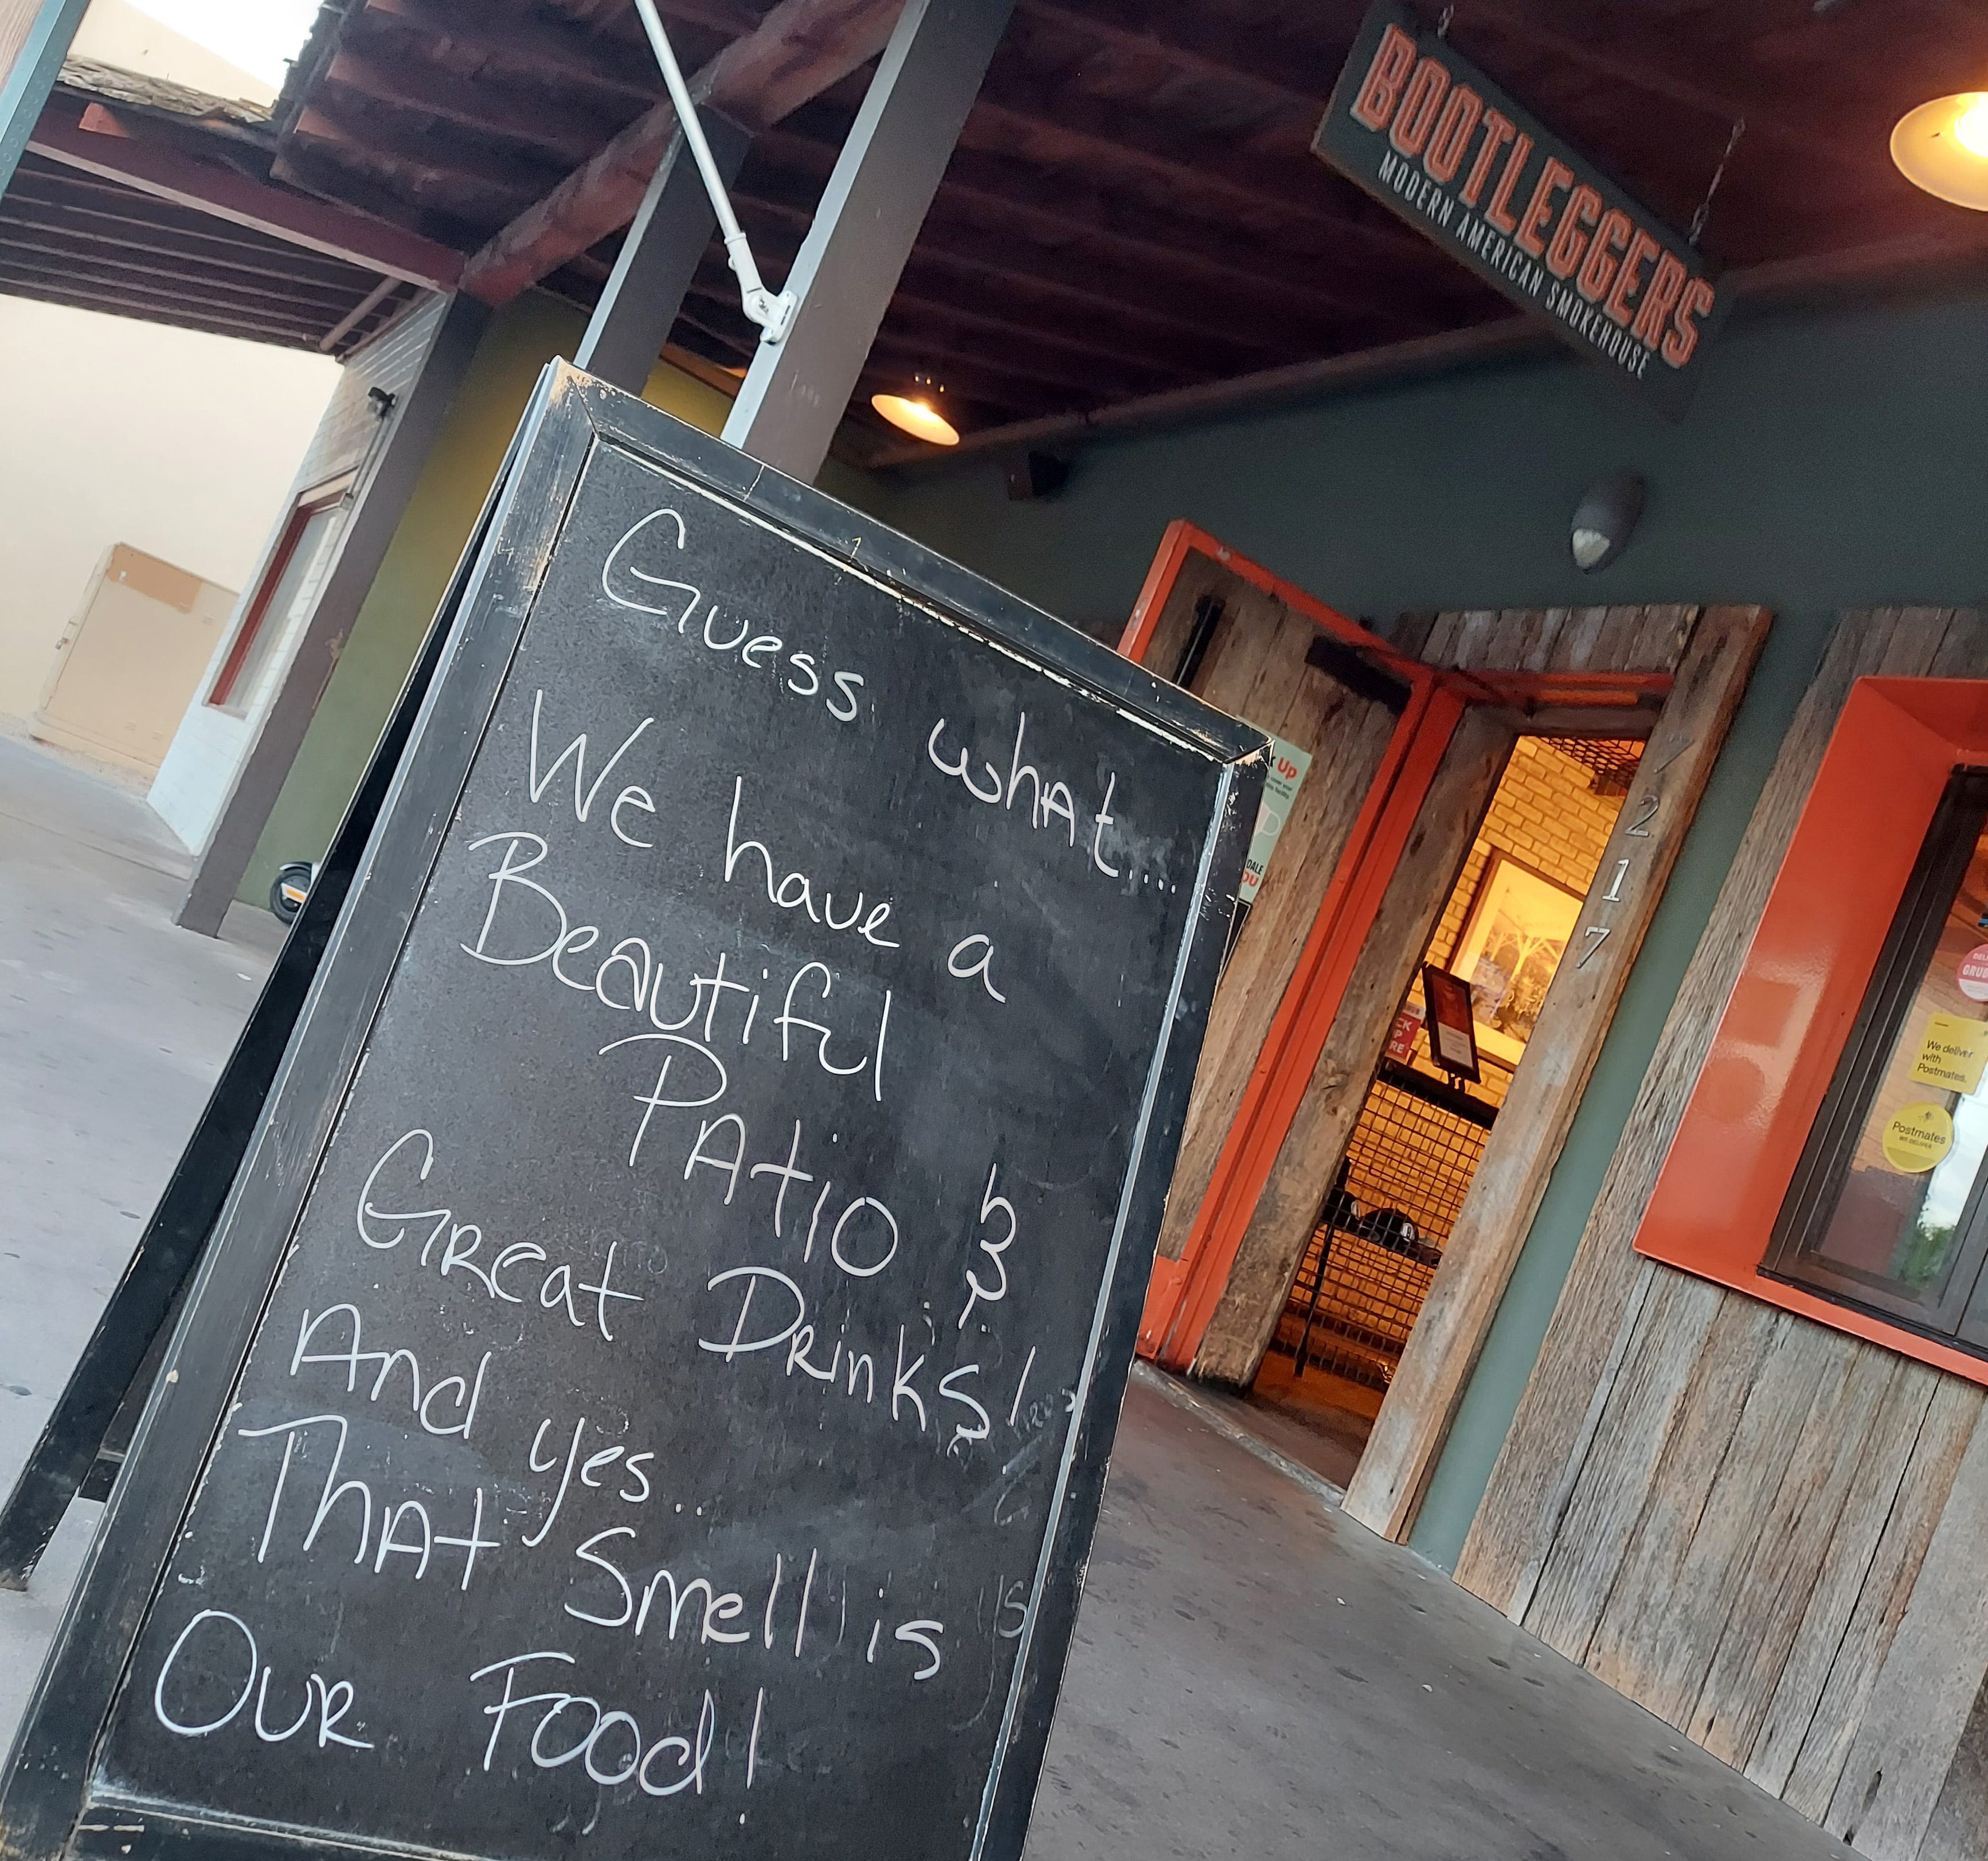 BOOTLEGGERS
MODERN AMERICAN SMOKEHOUSE
Guess what....
We have a
Beautiful
Patio &
Great Drinks!
And yes..
That Smell is
Our Food!
Up
DALE
OU
7217
CK
UP
RE
We deliver
with
Postmates.
Postmates
WE DELIVER